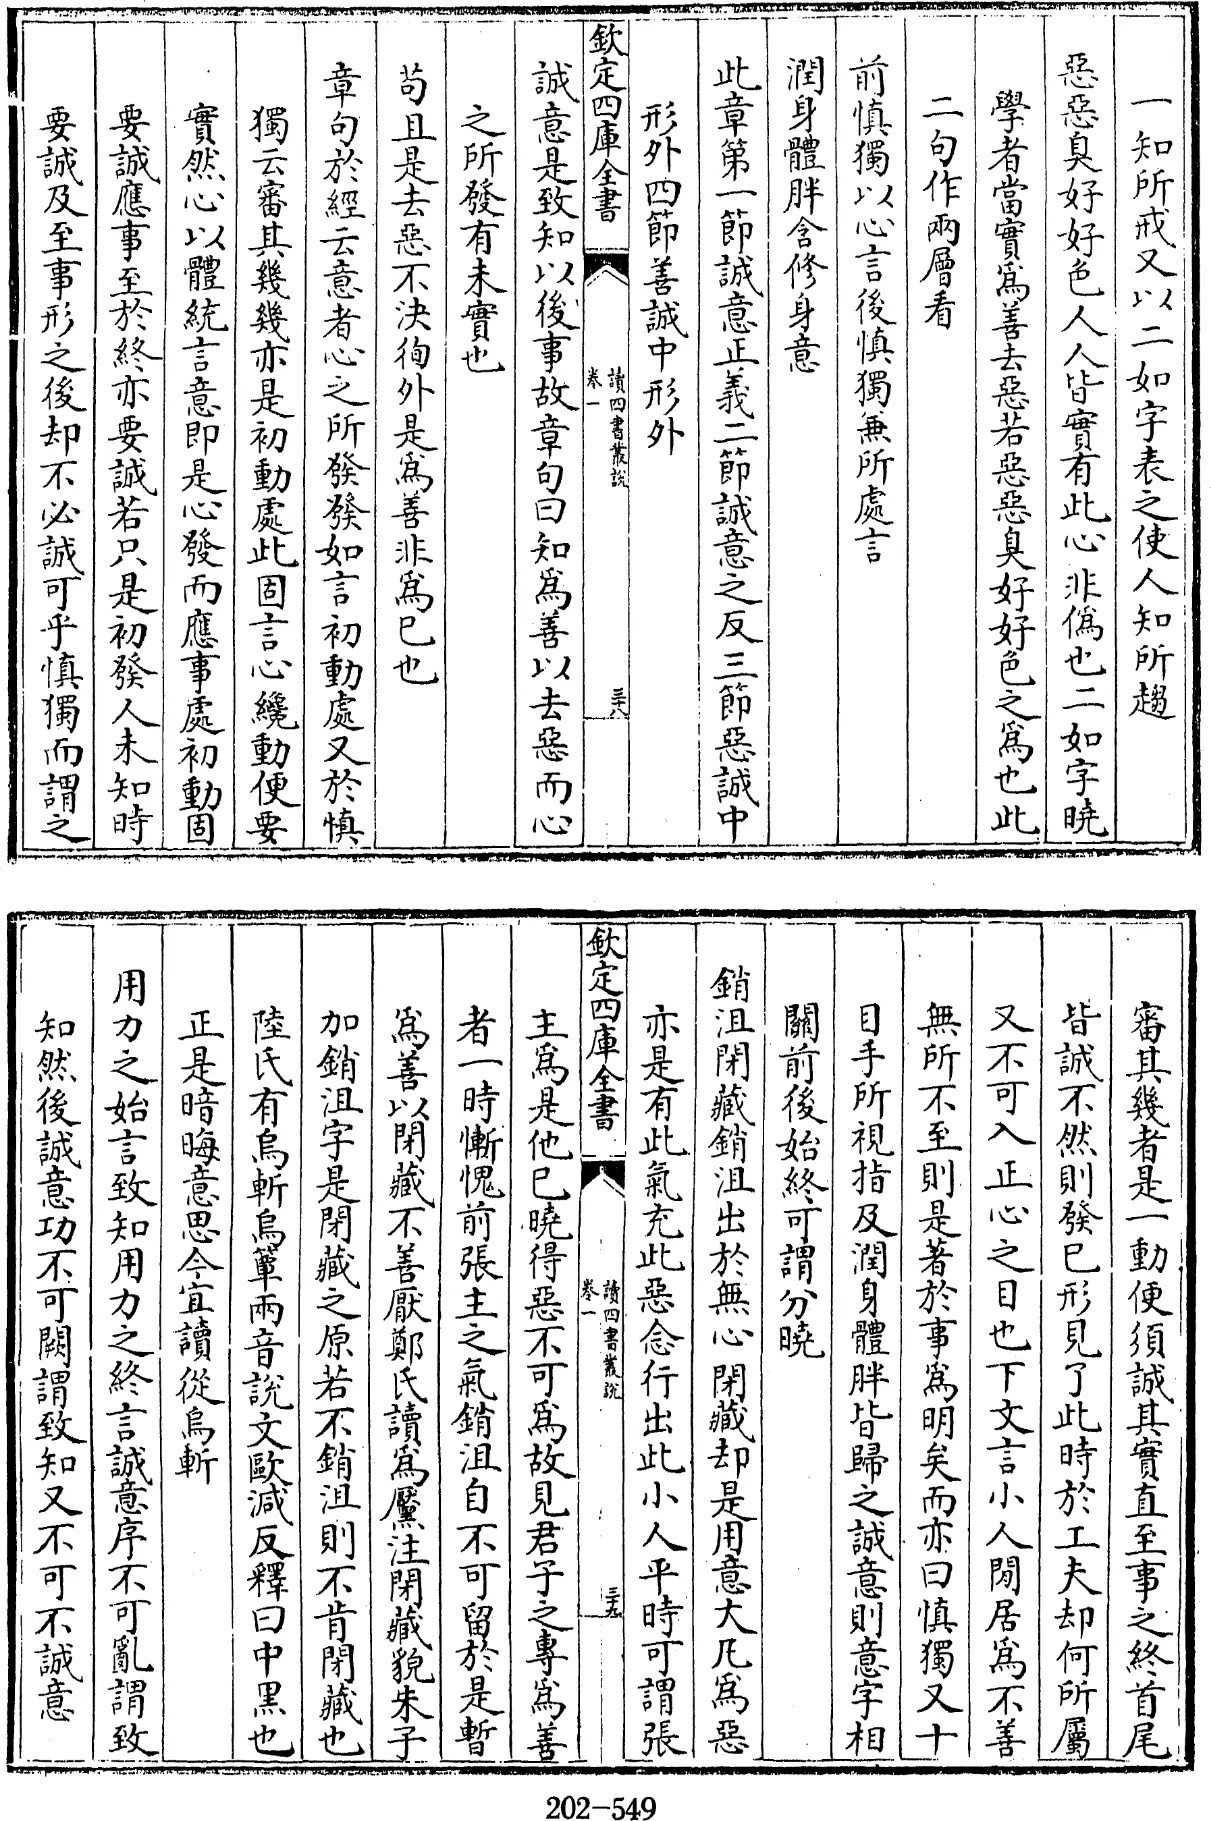 一知所戒又以二如字表之使人知所趨
惡惡臭好好色人人皆實有此心非僞也二如字曉
學者當實爲善去惡若惡惡臭好好色之爲也此
二句作兩層看
前慎獨以心言後慎獨兼所處言
潤身體胖含修身意
此章第一節誠意正義二節誠意之反三節惡誠中
形外四節善誠中形外
欽定四庫全書
讀四書叢說
卷一
三十八
誠意是致知以後事故章句曰知爲善以去惡而心
之所發有未實也
苟且是去惡不決徇外是爲善非爲已也
章句於經云意者心之所發發如言初動處又於慎
獨云審其幾幾亦是初動處此固言心纔動便要
實然心以體統言意即是心發而應事處初動固
要誠應事至於終亦要誠若只是初發人未知時
要誠及至事形之後却不必誠可乎慎獨而謂之
審其幾者是一動便須誠其實直至事之終首尾
皆誠不然則發已形見了此時於工夫却何所屬
又不可入正心之目也下文言小人閒居爲不善
無所不至則是著於事爲明矣而亦曰慎獨又十
目手所視指及潤身體胖皆歸之誠意則意字相
關前後始終可謂分曉
銷沮閉藏銷沮出於無心閉藏却是用意大凡爲惡
亦是有此氣充此惡念行出此小人平時可謂張
欽定四庫全書
讀四書叢說
卷一
三十九
主爲是他已曉得惡不可爲故見君子之專爲善
者一時慚愧前張主之氣銷沮自不可留於是暫
爲善以閉藏不善厭鄭氏讀爲黶注閉藏貌朱子
加銷沮字是閉藏之原若不銷沮則不肯閉藏也
陸氏有烏斬烏簟兩音說文歐減反釋曰中黑也
正是暗晦意思今宜讀從烏斬
用力之始言致知用力之終言誠意序不可亂謂致
知然後誠意功不可闕謂致知又不可不誠意
202-549